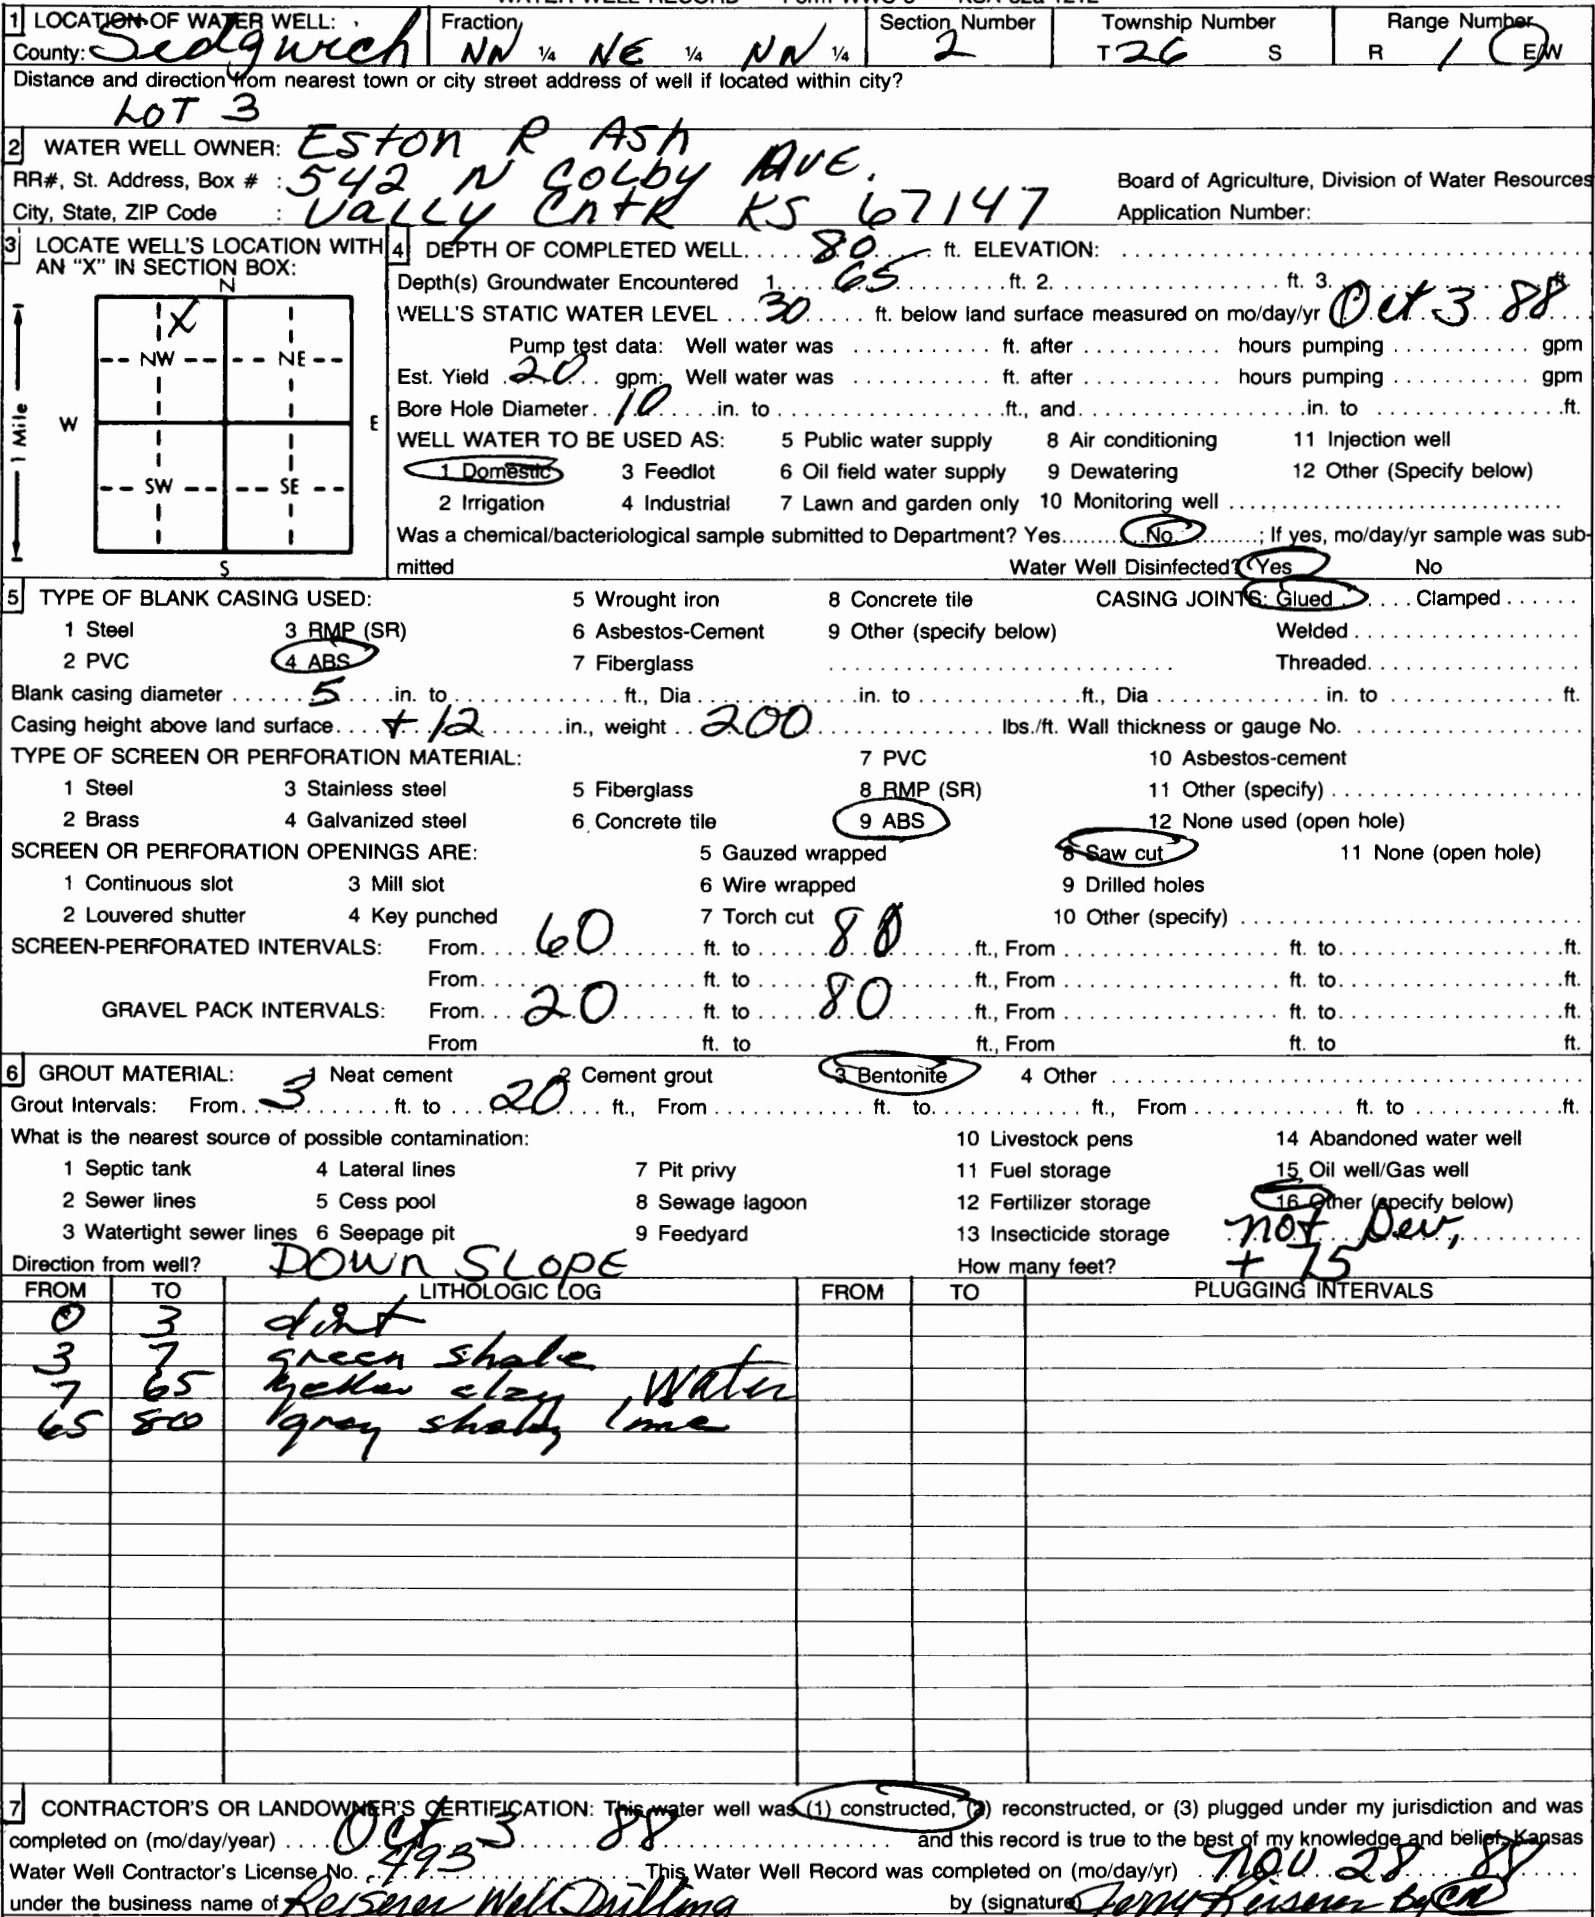 1 LOCATION OF WATER WELL: Fraction Section Number Township Number Range Number
County: Sedgwich NW ¼ NE ¼ NW ¼ 2 T 26 S R 1 E/W
Distance and direction from nearest town or city street address of well if located within city?
LOT 3
2 WATER WELL OWNER: Eston R Ash
RR#, St. Address, Box # : 542 N Colby Ave. Board of Agriculture, Division of Water Resources
City, State, ZIP Code : Vally Cntr KS 67147 Application Number:
3 LOCATE WELL'S LOCATION WITH AN "X" IN SECTION BOX:
N
X
NW NE
W E
SW SE
S
1 Mile
4 DEPTH OF COMPLETED WELL 80 ft. ELEVATION:
Depth(s) Groundwater Encountered 1. 65 ft. 2. ft. 3. ft
WELL'S STATIC WATER LEVEL 30 ft. below land surface measured on mo/day/yr Oct 3 88
Pump test data: Well water was ft. after hours pumping gpm
Est. Yield 20 gpm: Well water was ft. after hours pumping gpm
Bore Hole Diameter 10 in. to ft., and in. to ft.
WELL WATER TO BE USED AS: 5 Public water supply 8 Air conditioning 11 Injection well
1 Domestic 3 Feedlot 6 Oil field water supply 9 Dewatering 12 Other (Specify below)
2 Irrigation 4 Industrial 7 Lawn and garden only 10 Monitoring well
Was a chemical/bacteriological sample submitted to Department? Yes No ; If yes, mo/day/yr sample was sub-
mitted Water Well Disinfected? Yes No
5 TYPE OF BLANK CASING USED: 5 Wrought iron 8 Concrete tile CASING JOINTS: Glued Clamped
1 Steel 3 RMP (SR) 6 Asbestos-Cement 9 Other (specify below) Welded
2 PVC 4 ABS 7 Fiberglass Threaded
Blank casing diameter 5 in. to ft., Dia in. to ft., Dia in. to ft.
Casing height above land surface + 12 in., weight 200 lbs./ft. Wall thickness or gauge No.
TYPE OF SCREEN OR PERFORATION MATERIAL: 7 PVC 10 Asbestos-cement
1 Steel 3 Stainless steel 5 Fiberglass 8 RMP (SR) 11 Other (specify)
2 Brass 4 Galvanized steel 6 Concrete tile 9 ABS 12 None used (open hole)
SCREEN OR PERFORATION OPENINGS ARE: 5 Gauzed wrapped 8 Saw cut 11 None (open hole)
1 Continuous slot 3 Mill slot 6 Wire wrapped 9 Drilled holes
2 Louvered shutter 4 Key punched 7 Torch cut 10 Other (specify)
SCREEN-PERFORATED INTERVALS: From 60 ft. to 80 ft., From ft. to ft.
From ft. to ft., From ft. to ft.
GRAVEL PACK INTERVALS: From 20 ft. to 80 ft., From ft. to ft.
From ft. to ft., From ft. to ft.
6 GROUT MATERIAL: 1 Neat cement 2 Cement grout 3 Bentonite 4 Other
Grout Intervals: From 3 ft. to 20 ft., From ft. to ft., From ft. to ft.
What is the nearest source of possible contamination: 10 Livestock pens 14 Abandoned water well
1 Septic tank 4 Lateral lines 7 Pit privy 11 Fuel storage 15 Oil well/Gas well
2 Sewer lines 5 Cess pool 8 Sewage lagoon 12 Fertilizer storage 16 Other (specify below)
3 Watertight sewer lines 6 Seepage pit 9 Feedyard 13 Insecticide storage not Dev,
Direction from well? DOWN SLOPE How many feet? + 75
FROM TO LITHOLOGIC LOG FROM TO PLUGGING INTERVALS
0 3 dirt
3 7 green shale
7 65 yellow clay Water
65 80 gray shaly lime
7 CONTRACTOR'S OR LANDOWNER'S CERTIFICATION: This water well was (1) constructed, (2) reconstructed, or (3) plugged under my jurisdiction and was
completed on (mo/day/year) Oct 3 88 and this record is true to the best of my knowledge and belief. Kansas
Water Well Contractor's License No. 493 This Water Well Record was completed on (mo/day/yr) Nov 28 88
under the business name of Reiserer Well Drilling by (signature) Jerry Reiserer By